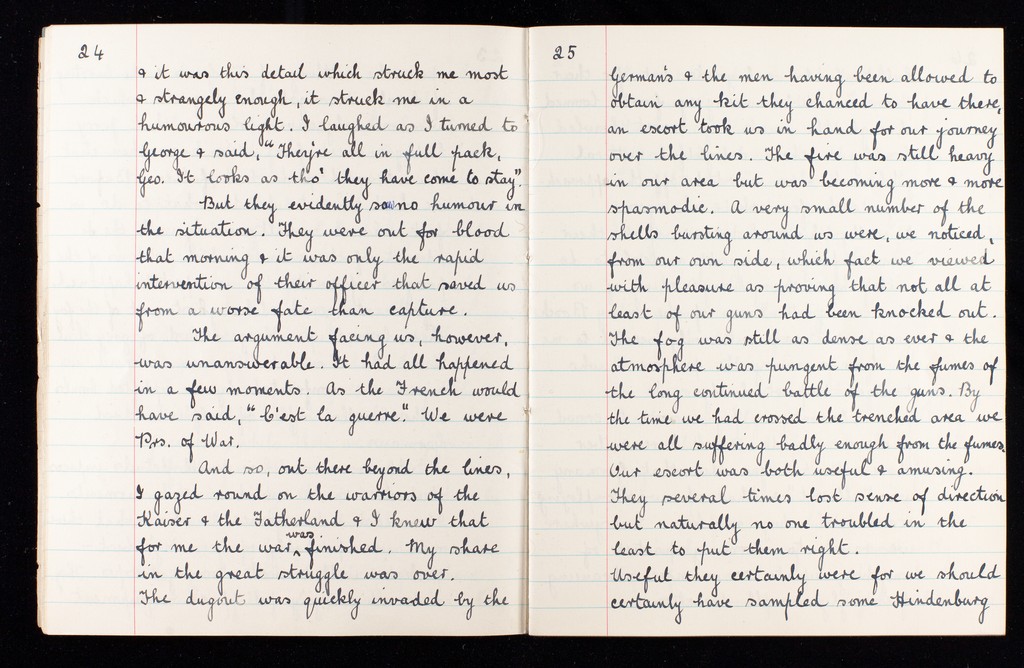 24
& it was this detail which struck me most
& strangely enough, it struck me in a
humourous light. I laughed as I turned to
George & said, "They're all in full pack,
Geo. It looks as tho' they have come to stay".
But they evidently saw no humour in
the situation. They were out for blood
that morning & it was only the rapid
intervention of their officer that saved us
from a worse fate than capture.
The argument facing us, however,
was unanswerable. It had all happened
in a few moments. As the French would
have said, "C'est la guerre." We were
Prs. of War.
And so, out there beyond the lines,
I gazed round on the warriors of the
Kaiser & the Fatherland & I knew that
for me the war was finished. My share
in the great struggle was over.
The dugout was quickly invaded by the
25
German's & the men having been allowed to
obtain any kit they chanced to have there,
an escort took us in hand for our journey
over the lines. The fire was still heavy
in our area but was becoming more & more
spasmodic. A very small number of the
shells bursting around us were, we noticed,
from our own side, which fact we viewed
with pleasure as proving that not all at
least of our guns had been knocked out.
The fog was still as dense as ever & the
atmosphere was pungent from the fumes of
the long continued battle of the guns. By
the time we had crossed the trenched area we
were all suffering badly enough from the fumes.
Our escort was both useful & amusing.
They several times lost sense of direction
but naturally no one troubled in the
least to put them right.
Useful they certainly were for we should
certainly have sampled some Hindenburg